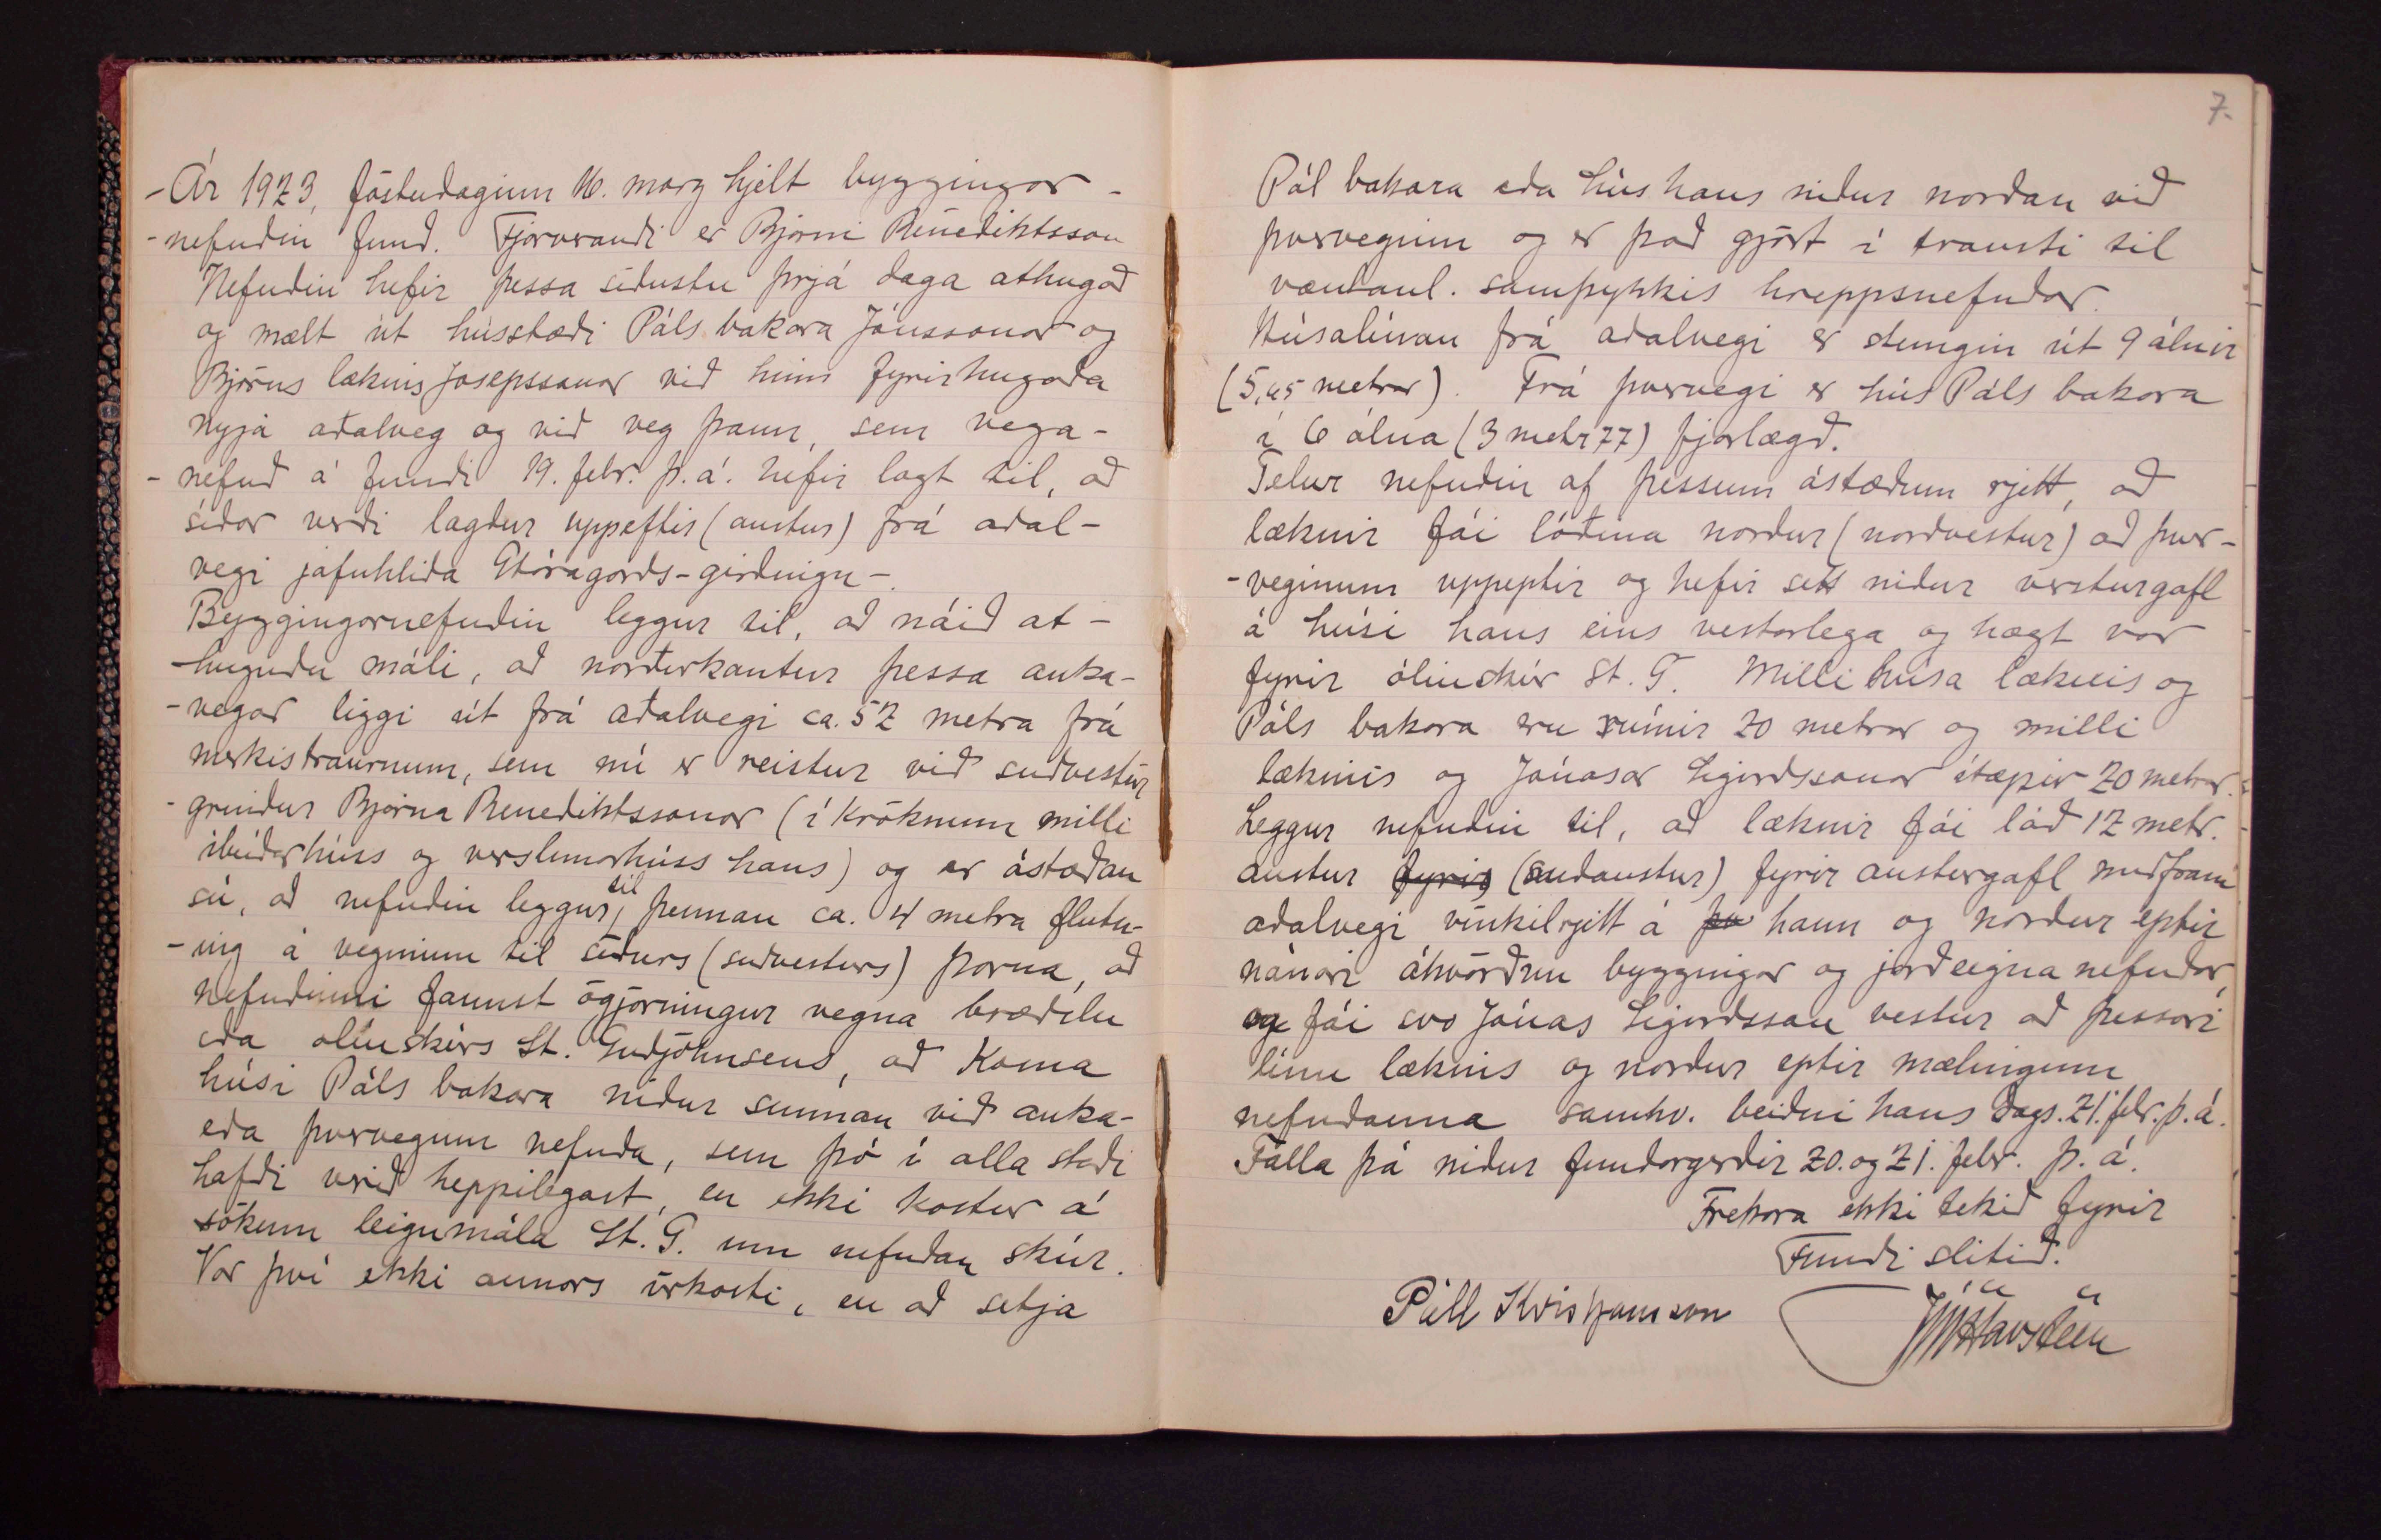 - Ár 1923, föstudaginn 16. marz hjelt byggingar -
- nefndin fund. Fjarverandi er Bjarni Benediktsson
Nefndin hefir þessa síðustu þrjá daga athugað
og mælt út hússtæði Páls bakara Jónssonar og
Björns læknis Josepssonar við hinn fyrirhugaða
nyja aðalveg og við veg þann, sem vega -
- nefnd á fundi 19. febr. þ. á. hefir lagt til, að
síðar verði lagður uppeftir (austur) frá aðal -
vegi jafnhliða Stóragarðs - girðingu -.
Byggingarnefndin leggur til, að náið at -
- huguðu máli, að norðurkantur þessa auka -
- vegar liggi út frá aðalvegi ca. 52 metra frá
merkistaurnum, sem nú er reistur við suðvestur
- grindur Bjarna Benediktssonar (í króknum milli
íbúðarhúss og verslunarhúss hans) og er ástæðan
sú, að nefndin leggur til þennan ca. 4 metra flutn -
- ing á veginum til suðurs (suðvesturs) þarna, að
nefndinni fannst ógjörningur vegna bræðslu
eða olíuskúrs St. Guðjohnsens, að koma
húsi Páls bakara niður sunnan við auka -
eða þvervegnum nefnda, sem þó í alla staði
hafði verið heppilegast, en ekki kostur á
sökum leigumála St. G. um nefndan skúr.
Var því ekki annars úrkosti, en að setja
7.
Pál bakara eða hús hans niður norðan við
þverveginn og er það gjört í trausti til
væntanl. samþykkis hreppsnefndar.
Húsalínan frá aðalvegi er stungin út 9 álnir
(5,65 metrar). Frá þvervegi er hús Páls bakara
í 6 álna (3 metr 77) fjarlægð.
Telur nefndin af þessum ástæðum rjett, að
læknir fái lóðina norður (norðvestur) að þver -
- veginum uppeptir og hefir sett niður vesturgafl
á húsi hans eins vestarlega og hægt var
fyrir olíuskúr St. G. Milli húsa læknis og
Páls bakara eru rúmir 20 metrar og milli
læknis og Jónasar Sigurdssonar útæpir 20 metrar.
Leggur nefndin til, að læknir fái lóð 12 metr.
austur fyrir (suðaustur) fyrir austurgafl meðfram
aðalvegi vinkilrjett á þv hann og norður eptir
nánari ákvörðun byggingar og jarðeigna nefndar,
og fái svo Jónas Sigurdsson vestur að þessari
línu læknis og norður eptir mælingum
nefndanna samkv. beiðni hans dags. 21. febr. þ. á.
Falla þá niður fundargerðir 20. og 21. febr. þ. á.
Frekara ekki tekið fyrir
Fundi slitið.
Páll Kristjánsson JHavsteen